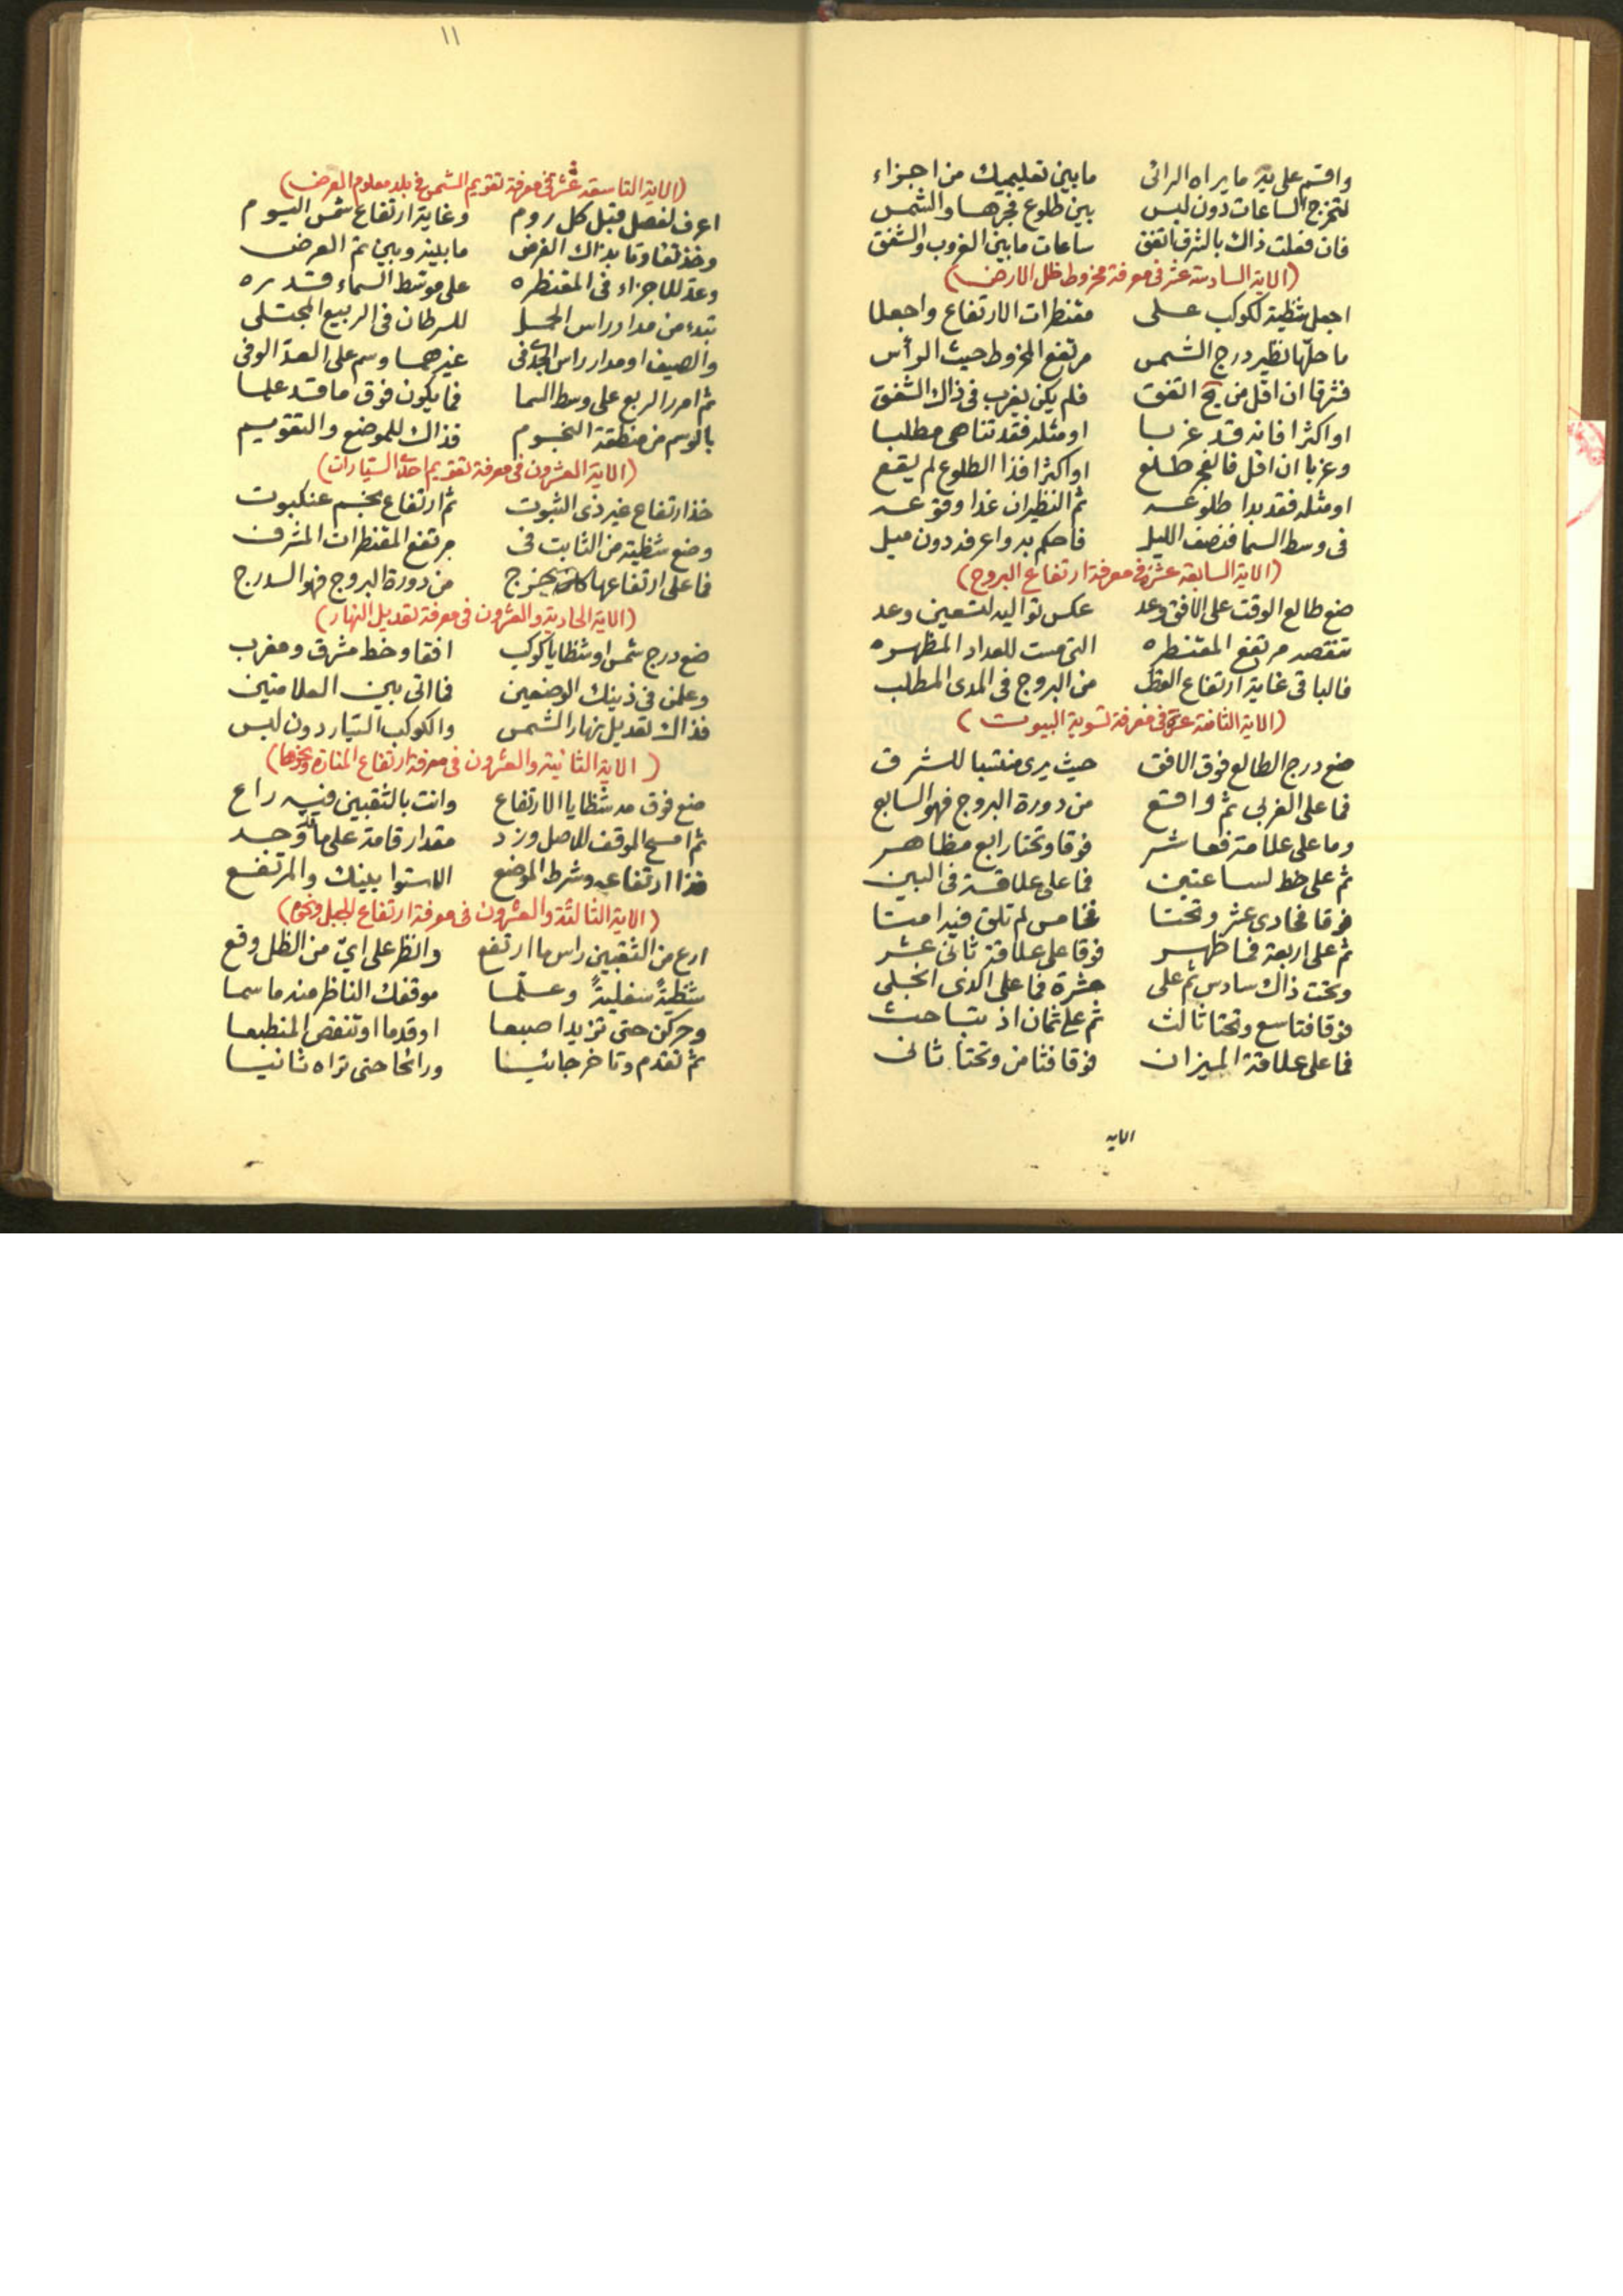 واقسم على يه ما يراه الرائى ما بين تعليميك من اجزاء
لتخرج الساعات دون لبس بين طلوع فجرها والشمس
فان فعلت ذاك بالشرق اتفق ساعات ما بين الغروب والشفق
(الاية السادسة عشر فى معرفة مخروط ظل الارض)
اجعل شظية لكوكب على مقنطرات الارتفاع واجعلا
ما حلها نظير درج الشمس مرتفع المخروط حيث الرأس
فشرقا ان اقل من يح اتفق فلم يكن يغرب فى ذاك الشفق
او اكثرا فانه قد غربا او مثله فقد تناهى مطلبا
وغربا ان اقل فالفجر طلع او اكثرا فذا الطلوع لم يقع
او مثله فقد بدا طلوعه ثم النظيران غدا وقوعه
فى وسط السما فنصف الليل فاحكم به واعرفه دون ميل
(الاية السابعة عشرة فى معرفة ارتفاع البروج)
ضع طالع الوقت على الافق وعد عكس تواليه لتسعين وعد
تنقصه مرتفع المقنطره التى مست للعداد المظهره
فالباقى غاية ارتفاع القطب من البروج فى المدى المطلب
(الاية الثامنة عشرة فى معرفة تسوية البيوت)
ضع درج الطالع فوق الافق حيث يرى منتسبا للشرق
فما على الغربى ثم واقع من دورة البروج فهو السابع
وما على علامة فعاشر فوقا وتحتا رابع مظاهر
ثم على خط لساعتين فما على علاقة فى البين
فوقا فحادى عشر وتحتا فخامس لم تلق فيه امتا
ثم على اربعة فما ظهر فوقا على علاقة ثانى عشر
وتحت ذاك سادس ثم على عشرة فما على الذى انجلى
فوقا فتاسع وتحتا ثالث ثم على ثمان اذ تباحث
فما على علاقة الميزان فوقا فثامن وتحتا ثانى
الايه
١١
(الاية التاسعة عشرة فى معرفة تقويم الشمس فى بلد معلوم العرض)
اعرف لفصل قبل كل روم وغاية ارتفاع شمس اليوم
وخذ تفاوتا بذاك الغرض ما بينه وبين تم العرض
وعد للاجزاء فى المقنطره على موسط السماء قدره
تبدء من مدار راس الحمل للسرطان فى الربيع المجتلى
والصيف او مدار راس الجدى فى غيرهما وسم على العد الوفى
ثم امرر الربع على وسط السما فما يكون فوق ما قد علما
بالوسم من منطقة النجوم فذاك للموضع والتقويم
(الاية العشرون فى معرفة تقويم احد السيارات)
خذ ارتفاع غير ذى الثبوت ثم ارتفاع نجم عنكبوت
وضع شظية من الثابت فى مرتفع المقنطرات المشرف
فما على ارتفاعها يخرج من دورة البروج فهو الدرج
(الاية الحادية والعشرون فى معرفة تعديل النهار)
ضع درج شمس او شظايا كوكب افقا وخط مشرق ومغرب
وعلمن فى ذينك الوضعين فما اتى بين العلامتين
فذاك تعديل نهار الشمس والكوكب السيار دون لبس
(الاية الثانية والعشرون فى معرفة ارتفاع المنارة ونحوها)
ضع فوق مه شظايا الارتفاع وانت بالثقبين فيه راع
ثم امسح الموقف للاصل وزد مقدار قامة على ما قد وجد
فذا ارتفاعه وشرط الموضع الاستوا بينك والمرتفع
(الاية الثالثة والعشرون فى معرفة ارتفاع الجبل ونحوه)
ارع من الثقبين راس ما ارتفع وانظر على اي من الظل وقع
شظية سفلية وعلما موقفك الناظر منه ما سما
وحركن حتى تزيد اصبعا او قدما او تنقص المنطبعا
ثم تقدم وتاخر جائيا ورائحا حتى تراه ثانيا